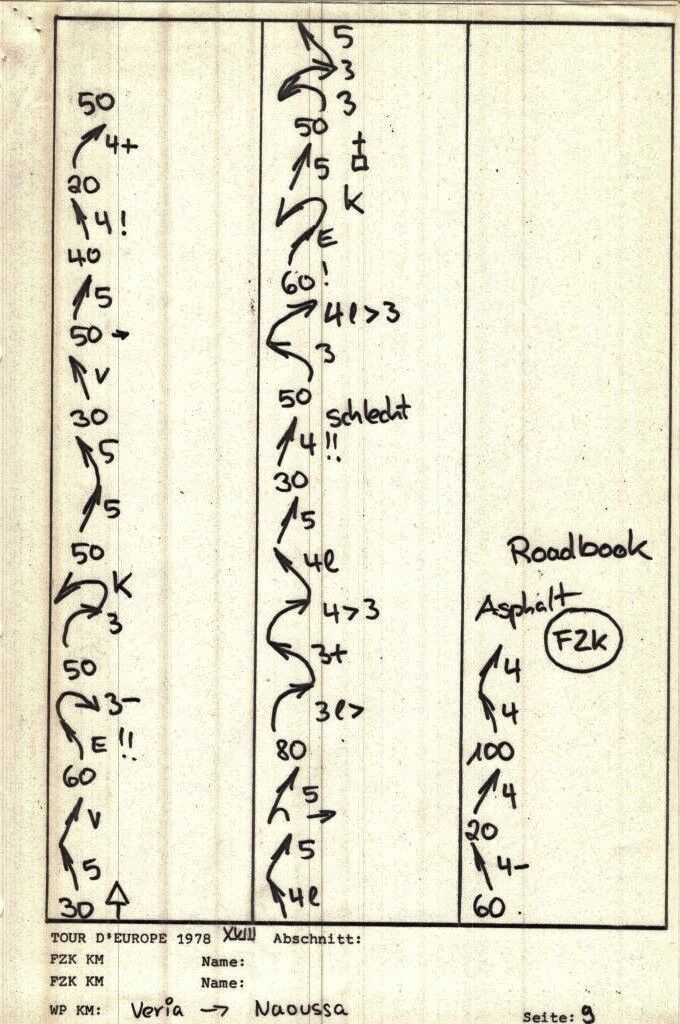 50
4+
20
4!
40
5
50
V
30
5
5
50
K
3
50
3-
E !!
60
V
5
30
5
3
3
50
5
K
E
60!
4l>3
3
50 schlecht
4!!
30
5
4l
4>3
3+
3l>
80
5
5
4l
Roadbook
Asphalt
FZK
4
4
100
4
20
4-
60
TOUR D'EUROPE 1978 XXIII Abschnitt:
FZK KM Name:
FZK KM Name:
WP KM: Veria → Naoussa
Seite: 9